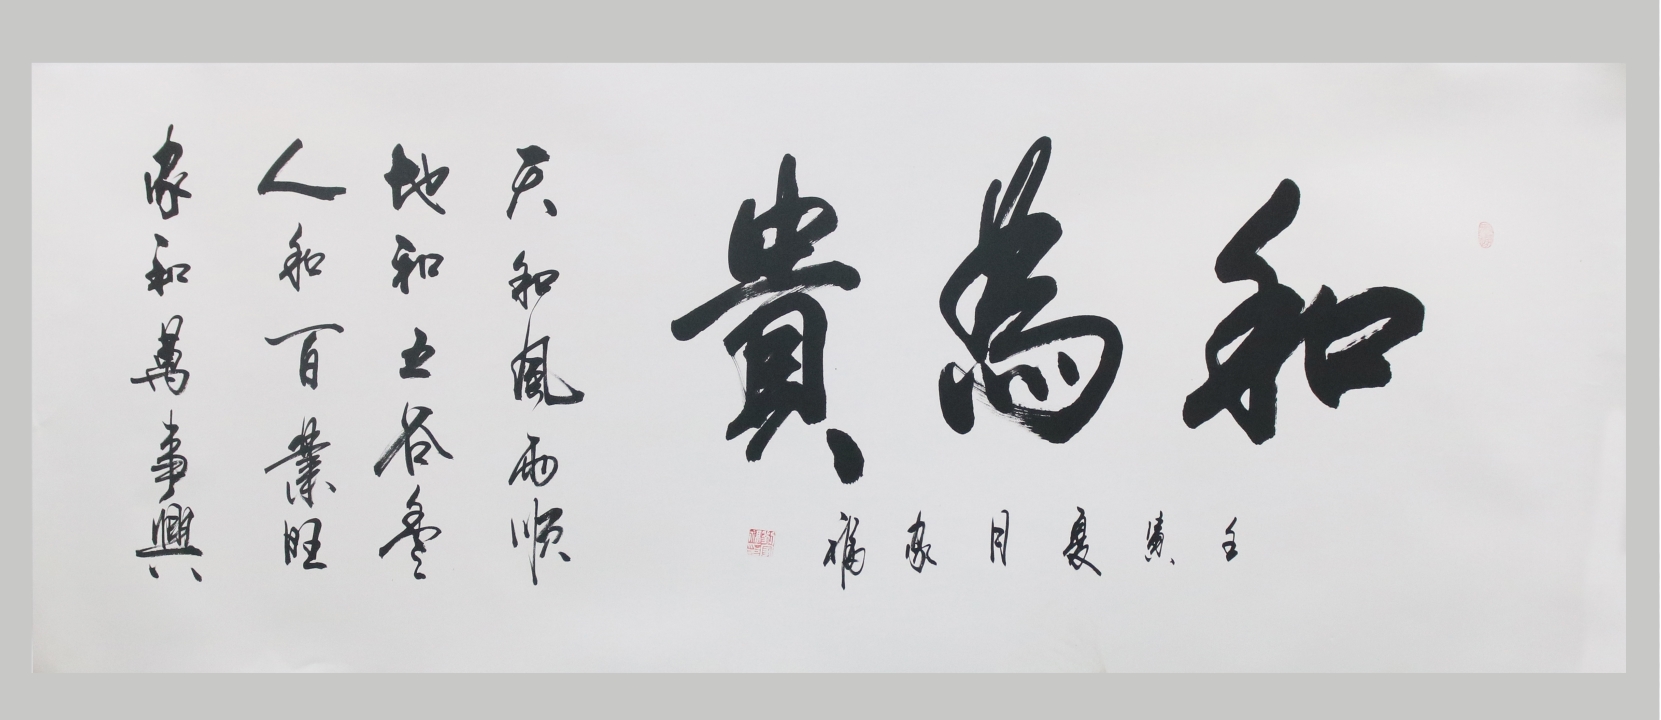 和為貴
壬寅夏月家福
天和風雨順
地和五谷登
人和百業旺
家和萬事興